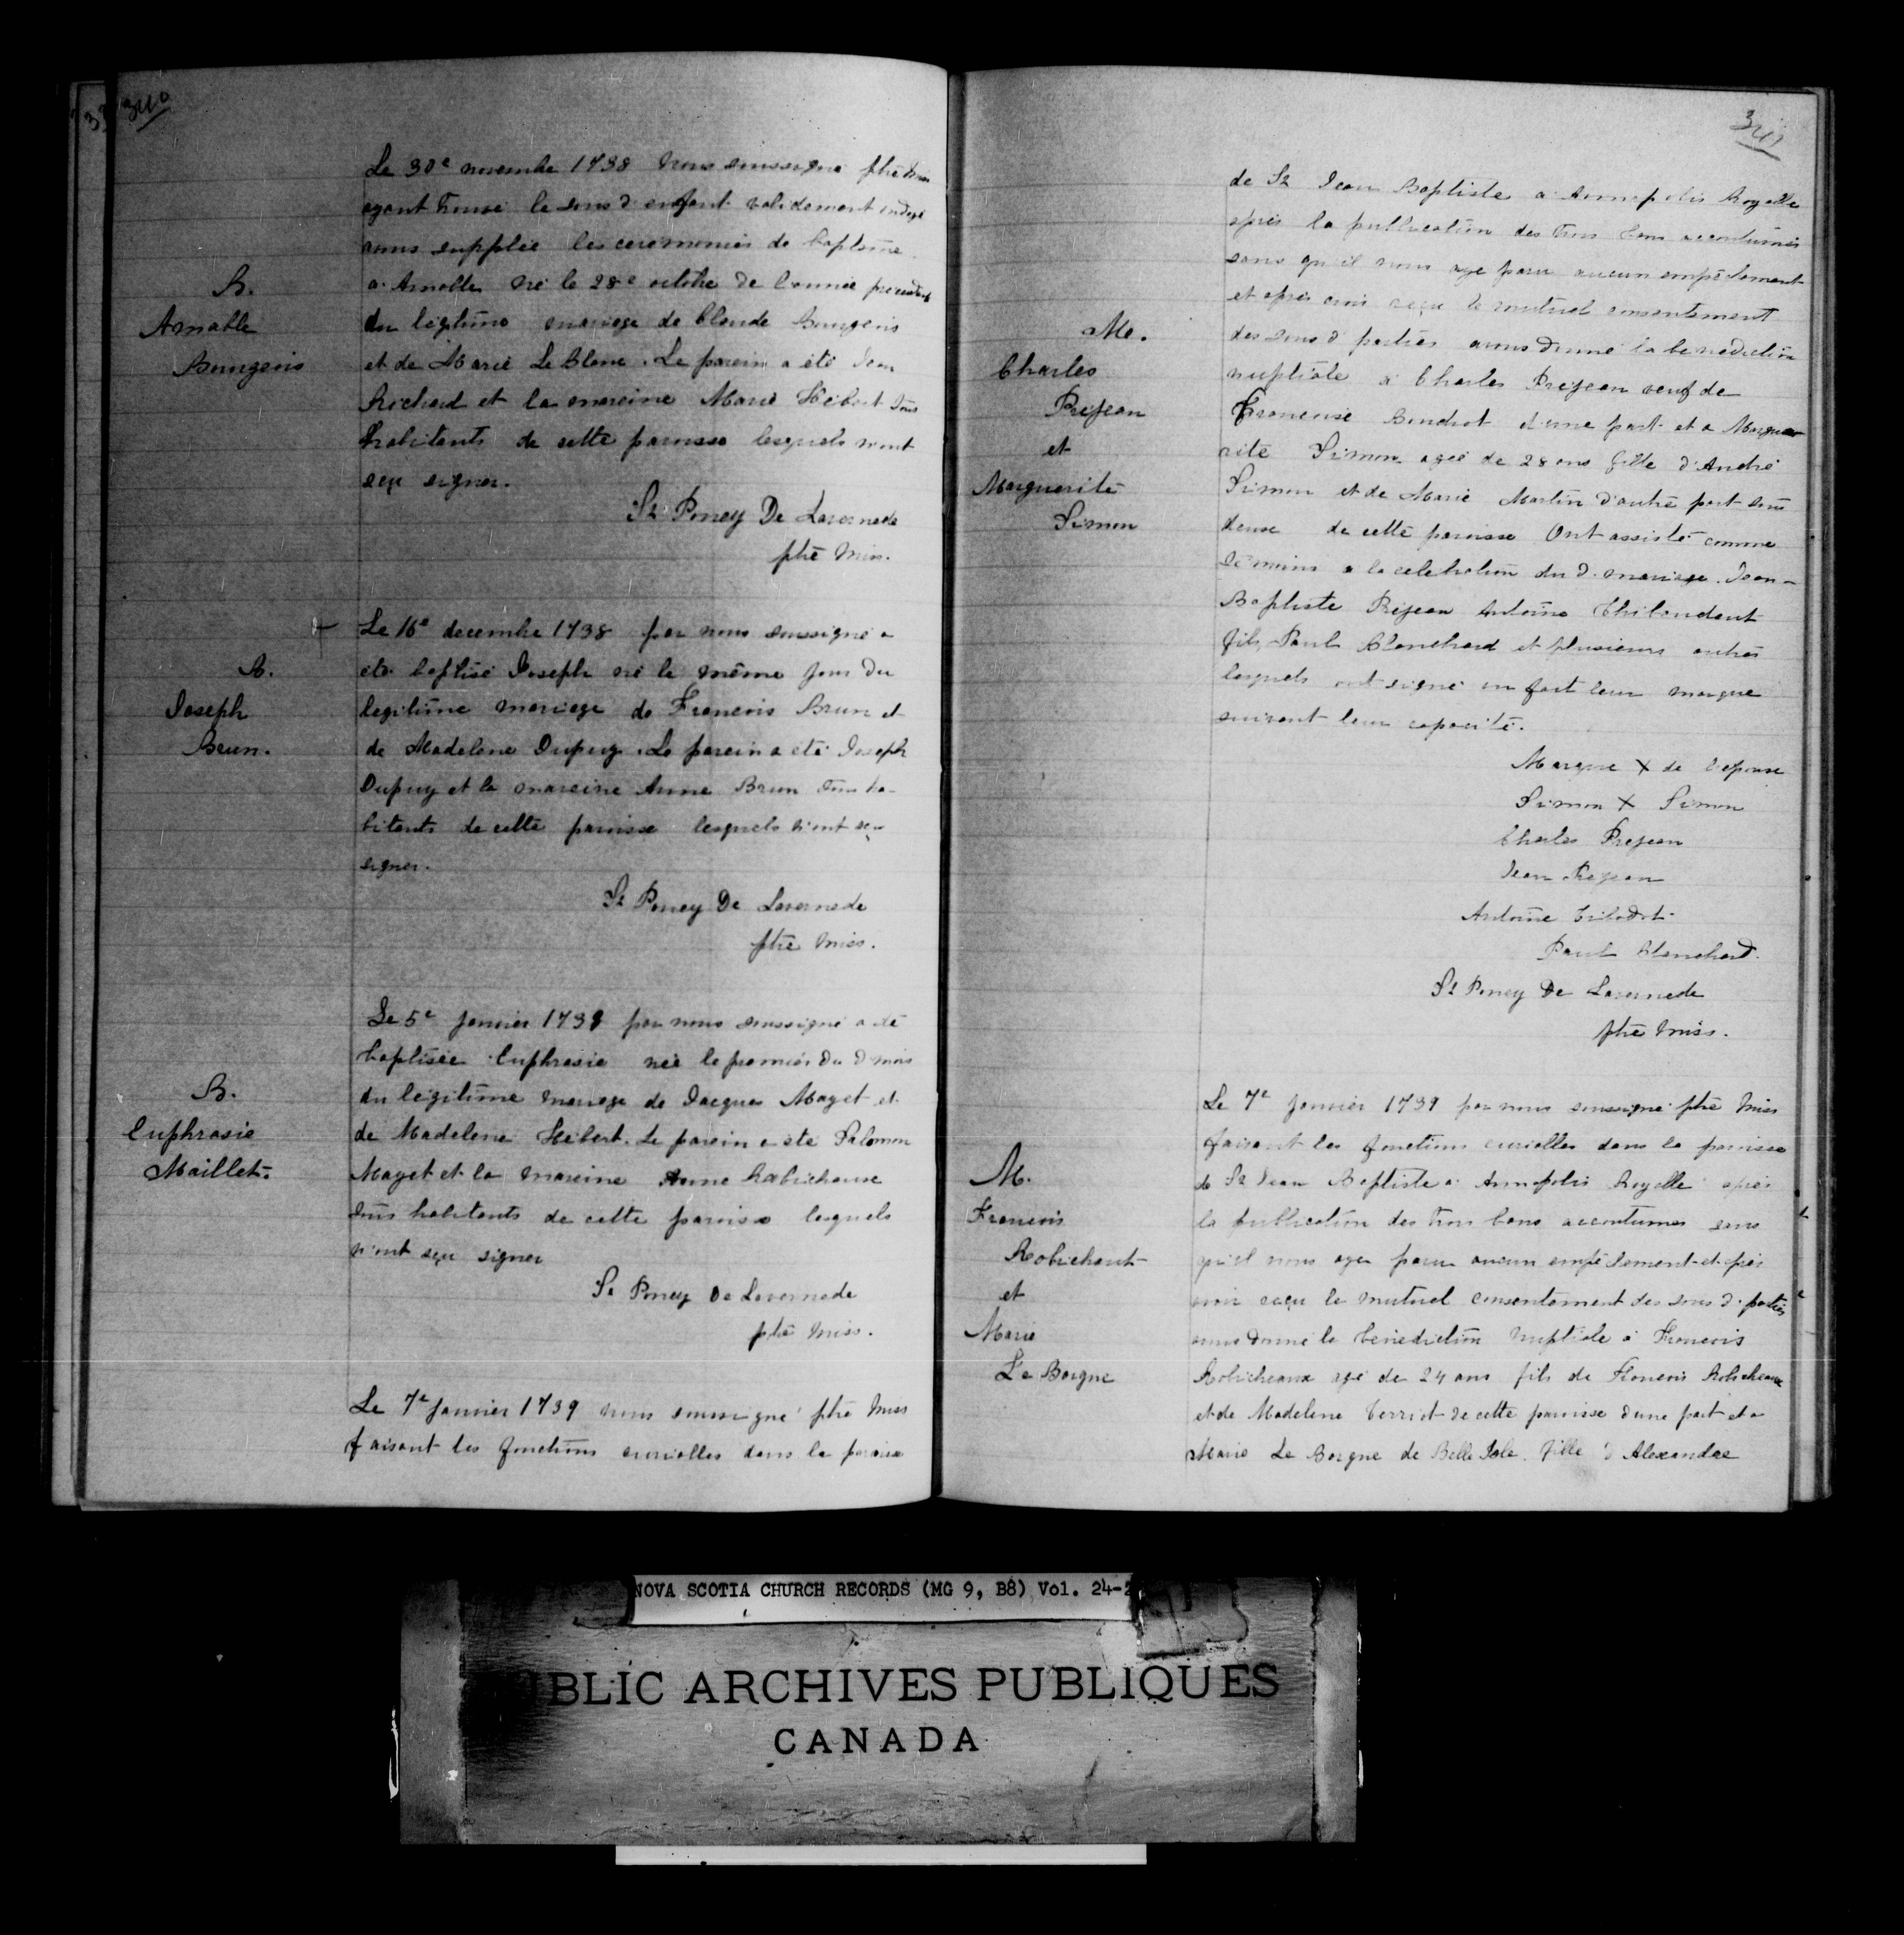 340
Le 30e novembre 1738 nous soussigné ptre miss
ayant trouvé le sous d. enfant validement ondoyé
avons supplée les ceremonies de baptême
a Amable né le 28e octobre de l'année
B.
Amable
Bourgeois
du légitime mariage de Claude Bourgeois
et de Marie Le Blanc. Le parein a été Jean
Richard et la mareine Marie Hébert tous
habitants de cette paroisse lesquels n'ont
sçu signer.
St Poncy De Lavernede
ptre Miss.
Le 16e decembre 1738 par nous soussigné a
B.
Joseph
Brun.
été baptisé Joseph né le même jour du
legitime mariage de Francois Brun et
de Madelene Dupuy. Le parein a été Joseph
Dupuy et la mareine Anne Brun tous ha-
bitants de cette paroisse lesquels n'ont sçu
signer.
St Poncy De Lavernede
ptre Miss.
Le 5e janvier 1739 par nous soussigné a été
baptisée Euphrasie née le premier du d mois
B.
Euphrasie
Maillet.
du légitime mariage de Jacques Mayet et
de Madelene Hébert. Le parein a été Salomon
Mayet et la mareine Anne Robichause
tous habitants de cette paroisse lesquels
n'ont sçu signer
St Poncy De Lavernede
ptre Miss.
Le 7e janvier 1739 nous soussigné ptre Miss
faisant les fonctions curialles dans la paroisse
341
de St Jean Baptiste a Annapolis Royalle
apres la publication des trois bans accoutumés
sans qu'il nous aye paru aucun empêchement
et apres avoir reçu le mutuel consentement
des sous d parties avons donné la benediction
Me.
Charles
Prejean
et
Marguerite
Simon
nuptiale a Charles Prejean veuf de
Francoise Boudrot d'une part et a Margue-
rite Simon agée de 28 ans fille d'André
Simon et de Marie Martin d'autre part tous
deux de cette paroisse Ont assisté comme
témoins a la celebration du d. mariage Jean-
Baptiste Prejean Antoine Thibaudaut
fils, Paul Blanchard et plusieurs autres
lesquels ont signé ou fait leur marque
suivant leur capacité.
Marque X de l'epouse
Simon X Simon
Charles Prejean
Jean Prejean
Antoine Tibodot
Paul Blanchard.
St Poncy De Lavernede
ptre Miss.
Le 7e janvier 1739 par nous soussigné ptre Miss
faisant les fonctions curialles dans la paroisse
M.
Francois
Robichaut
et
Marie
Le Borgne
de St Jean Baptiste a Annapolis Royalle apres
la publication des trois bans accoutumes sans
qu'il nous aye paru aucun empêchement et apres
avoir reçu le mutuel consentement des sous d. parties
avons donné la bénédiction nuptiale a Francois
Robicheaux agé de 24 ans fils de Francois Robicheaux
et de Madelene Terriot de cette paroisse d'une part et a
Marie Le Borgne de Belle Isle fille d'Alexandre
NOVA SCOTIA CHURCH RECORDS (MG 9, B8) Vol. 24-2
BLIC ARCHIVES PUBLIQUES
CANADA